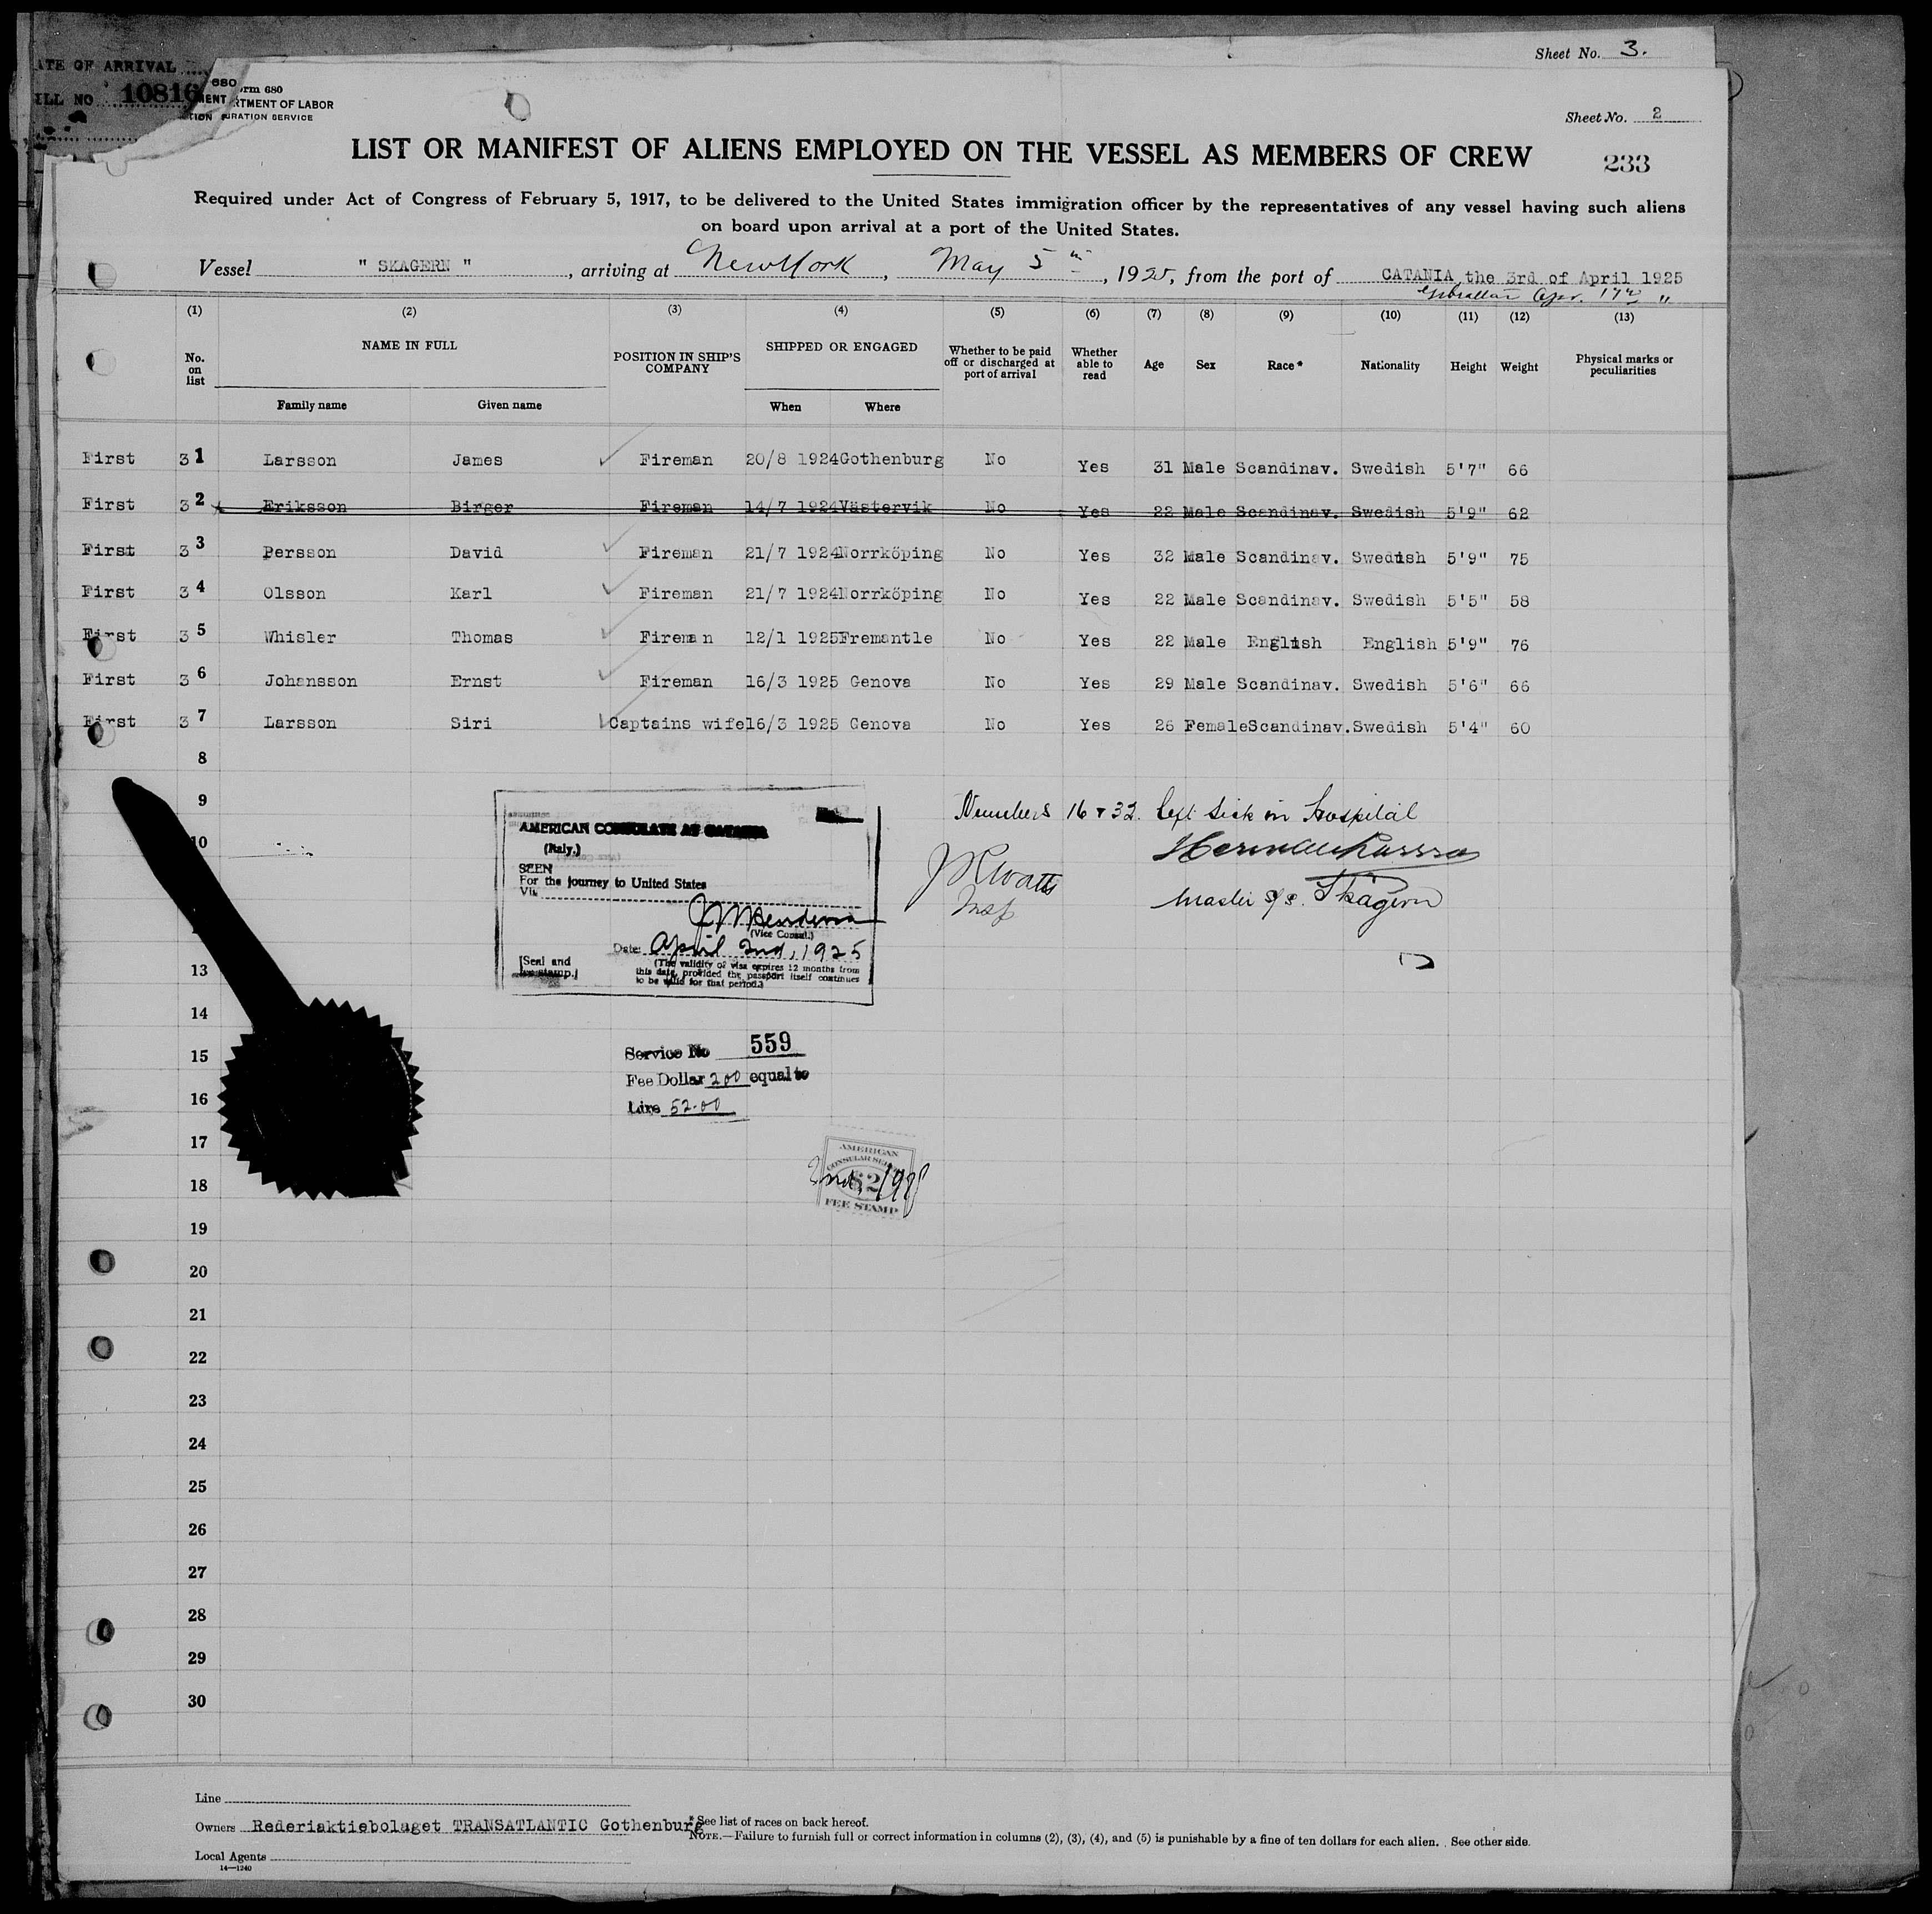 Sheet No. 3.
ATE OF ARRIVAL
ILL NO 10816
680
rm 680
MENT RTMENT OF LABOR
TION GRATION SERVICE
Sheet No. 2
LIST OR MANIFEST OF ALIENS EMPLOYED ON THE VESSEL AS MEMBERS OF CREW
233
Required under Act of Congress of February 5, 1917, to be delivered to the United States immigration officer by the representatives of any vessel having such aliens
on board upon arrival at a port of the United States.
Vessel " SKAGERN ", arriving at New York, May 5th, 1925, from the port of CATANIA the 3rd of April 1925
Gibraltar Apr. 17th "
(1) (2) (3) (4) (5) (6) (7) (8) (9) (10) (11) (12) (13)
No. on list NAME IN FULL POSITION IN SHIP'S COMPANY SHIPPED OR ENGAGED Whether to be paid off or discharged at port of arrival Whether able to read Age Sex Race* Nationality Height Weight Physical marks or peculiarities
Family name Given name When Where
First 31 Larsson James Fireman 20/8 1924 Gothenburg No Yes 31 Male Scandinav. Swedish 5'7" 66
First 32 Eriksson Birger Fireman 14/7 1924 Västervik No Yes 22 Male Scandinav. Swedish 5'9" 62
First 33 Persson David Fireman 21/7 1924 Norrköping No Yes 32 Male Scandinav. Swedish 5'9" 75
First 34 Olsson Karl Fireman 21/7 1924 Norrköping No Yes 22 Male Scandinav. Swedish 5'5" 58
First 35 Whisler Thomas Fireman 12/1 1925 Fremantle No Yes 22 Male English English 5'9" 76
First 36 Johansson Ernst Fireman 16/3 1925 Genova No Yes 29 Male Scandinav. Swedish 5'6" 66
First 37 Larsson Siri Captains wife 16/3 1925 Genova No Yes 26 Female Scandinav. Swedish 5'4" 60
8
9
10
13
14
15
16
17
18
19
20
21
22
23
24
25
26
27
28
29
30
AMERICAN CONSULATE AT CATANIA
(Italy.)
SEEN
For the journey to United States
Via
(Vice Consul.)
Date: April 2nd, 1925
(The validity of visa expires 12 months from
this date, provided the passport itself continues
to be valid for that period.)
[Seal and
fee stamp.]
Numbers 16 & 32. left sick in Hospital
Herman Larsson
Master s/s. Skagern
J R Watts
Insp
Service No 559
Fee Dollar 2.00 equal to
Lire 52.00
AMERICAN
CONSULAR SERVICE
$2
FEE STAMP
Line
Owners Rederiaktiebolaget TRANSATLANTIC Gothenburg
Local Agents
14—1240
*See list of races on back hereof.
NOTE.—Failure to furnish full or correct information in columns (2), (3), (4), and (5) is punishable by a fine of ten dollars for each alien. See other side.